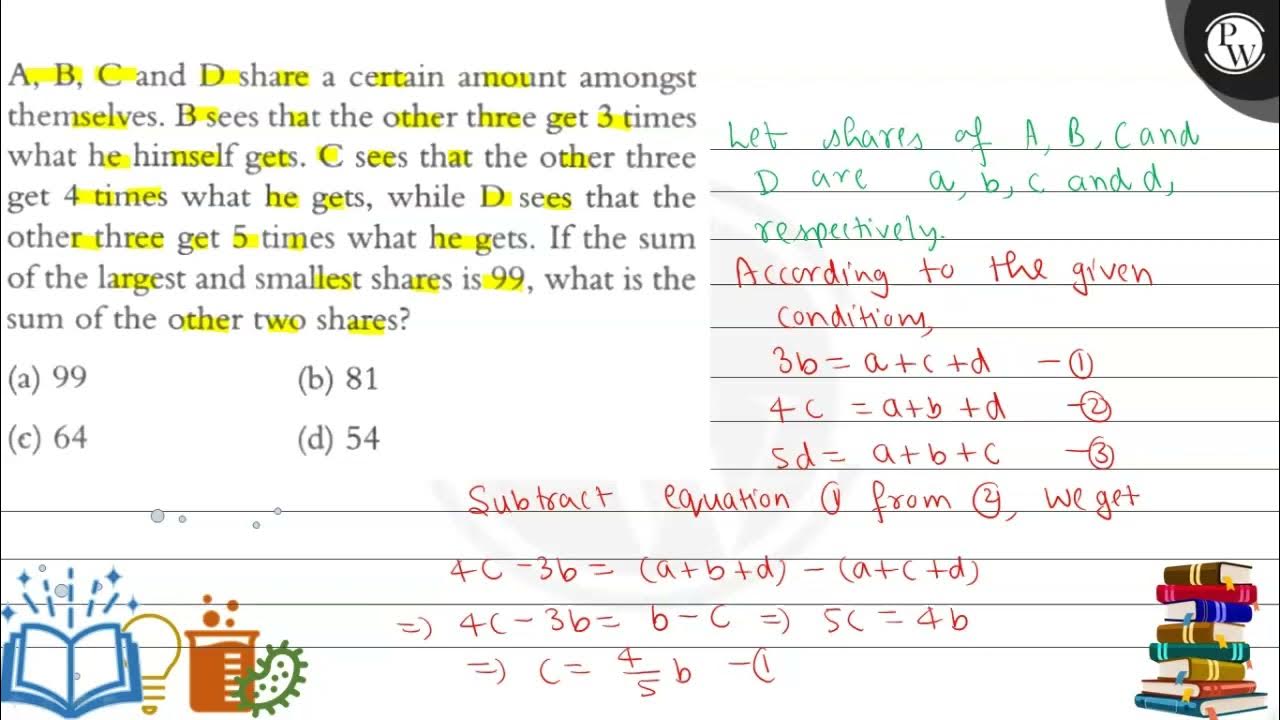 A, B, C and D share a certain amount amongst
themselves. B sees that the other three get 3 times
what he himself gets. C sees that the other three
get 4 times what he gets, while D sees that the
other three get 5 times what he gets. If the sum
of the largest and smallest shares is 99, what is the
sum of the other two shares?
(a) 99 (b) 81
(c) 64 (d) 54
PW
Let shares of A, B, C and
D are a, b, c and d,
respectively.
According to the given
conditions,
3b = a + c + d - ①
4c = a + b + d - ②
5d = a + b + c - ③
Subtract equation ① from ②, we get
4c - 3b = (a + b + d) - (a + c + d)
=) 4c - 3b = b - c =) 5c = 4b
=) c = 4/5 b - (1